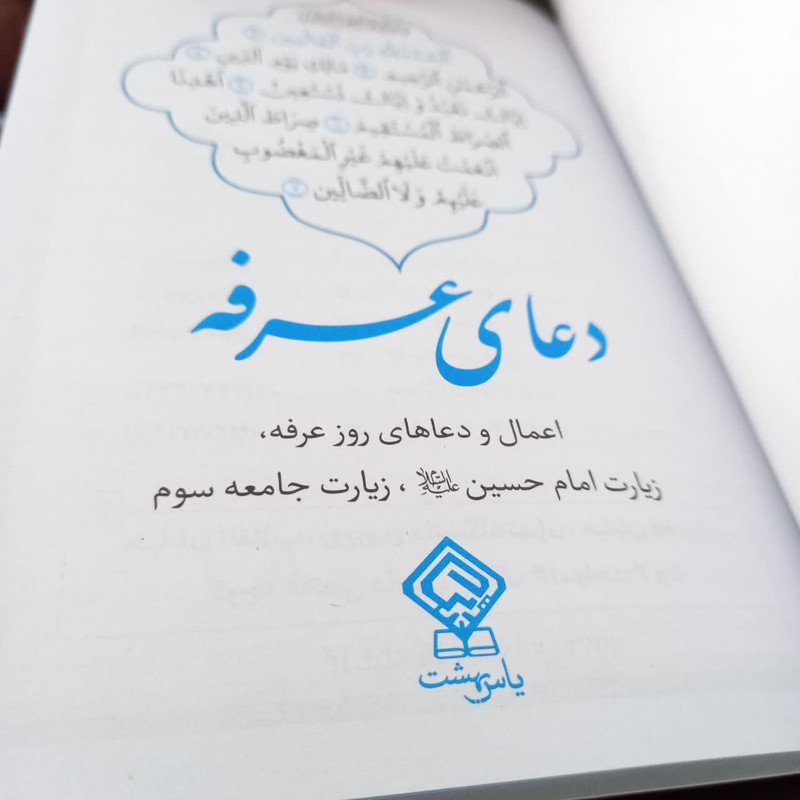 ٱلرَّحْمَٰنِ ٱلرَّحِيمِ ﴿۳﴾ مَالِكِ يَوْمِ ٱلدِّينِ ﴿۴﴾
إِيَّاكَ نَعْبُدُ وَ إِيَّاكَ نَسْتَعِينُ ﴿۵﴾ ٱهْدِنَا
ٱلصِّرَاطَ ٱلْمُسْتَقِيمَ ﴿۶﴾ صِرَاطَ ٱلَّذِينَ
أَنْعَمْتَ عَلَيْهِمْ غَيْرِ ٱلْمَغْضُوبِ
عَلَيْهِمْ وَلَا ٱلضَّالِّينَ ﴿۷﴾
دعای عرفه
اعمال و دعاهای روز عرفه،
زیارت امام حسین علیه‌السلام ، زیارت جامعه سوم
یاس بهشت